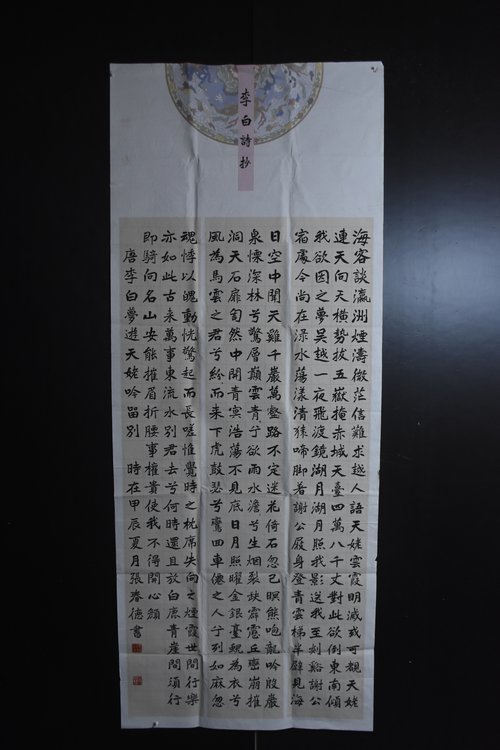 李白詩抄
海客談瀛洲煙濤微茫信難求越人語天姥雲霞明滅或可覩天姥
連天向天橫勢拔五嶽掩赤城天臺四萬八千丈對此欲倒東南傾
我欲因之夢吳越一夜飛渡鏡湖月湖月照我影送我至剡谿謝公
宿處今尚在淥水蕩漾清猿啼脚著謝公屐身登青雲梯半壁見海
日空中聞天雞千巖萬壑路不定迷花倚石忽已暝熊咆龍吟殷巖
泉慄深林兮驚層巔雲青兮欲雨水澹兮生煙裂缺霹靂丘巒崩摧
洞天石扉訇然中開青冥浩蕩不見底日月照曜金銀臺霓為衣兮
風為馬雲之君兮紛而来下虎鼓瑟兮鸞回車僊之人兮列如麻忽
魂悸以魄動恍驚起而長嗟惟覺時之枕席失向之煙霞世間行樂
亦如此古来萬事東流水別君去兮何時還且放白鹿青崖間須行
即騎向名山安能摧眉折腰事權貴使我不得開心顏
唐李白夢遊天姥吟留別 時在甲辰夏月張春德書